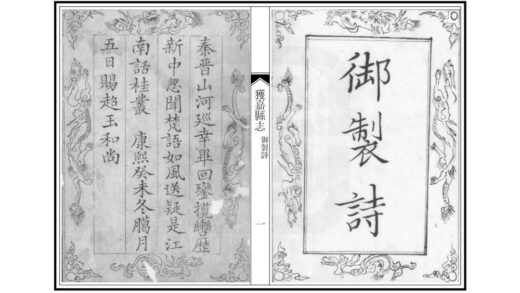 御製詩
獲嘉縣志 御製詩 一
秦晉山河巡幸畢回鑾攬轡歷
新中忽聞梵語如風送疑是江
南話桂叢 康熙癸未冬臘月
五日賜超玉和尚